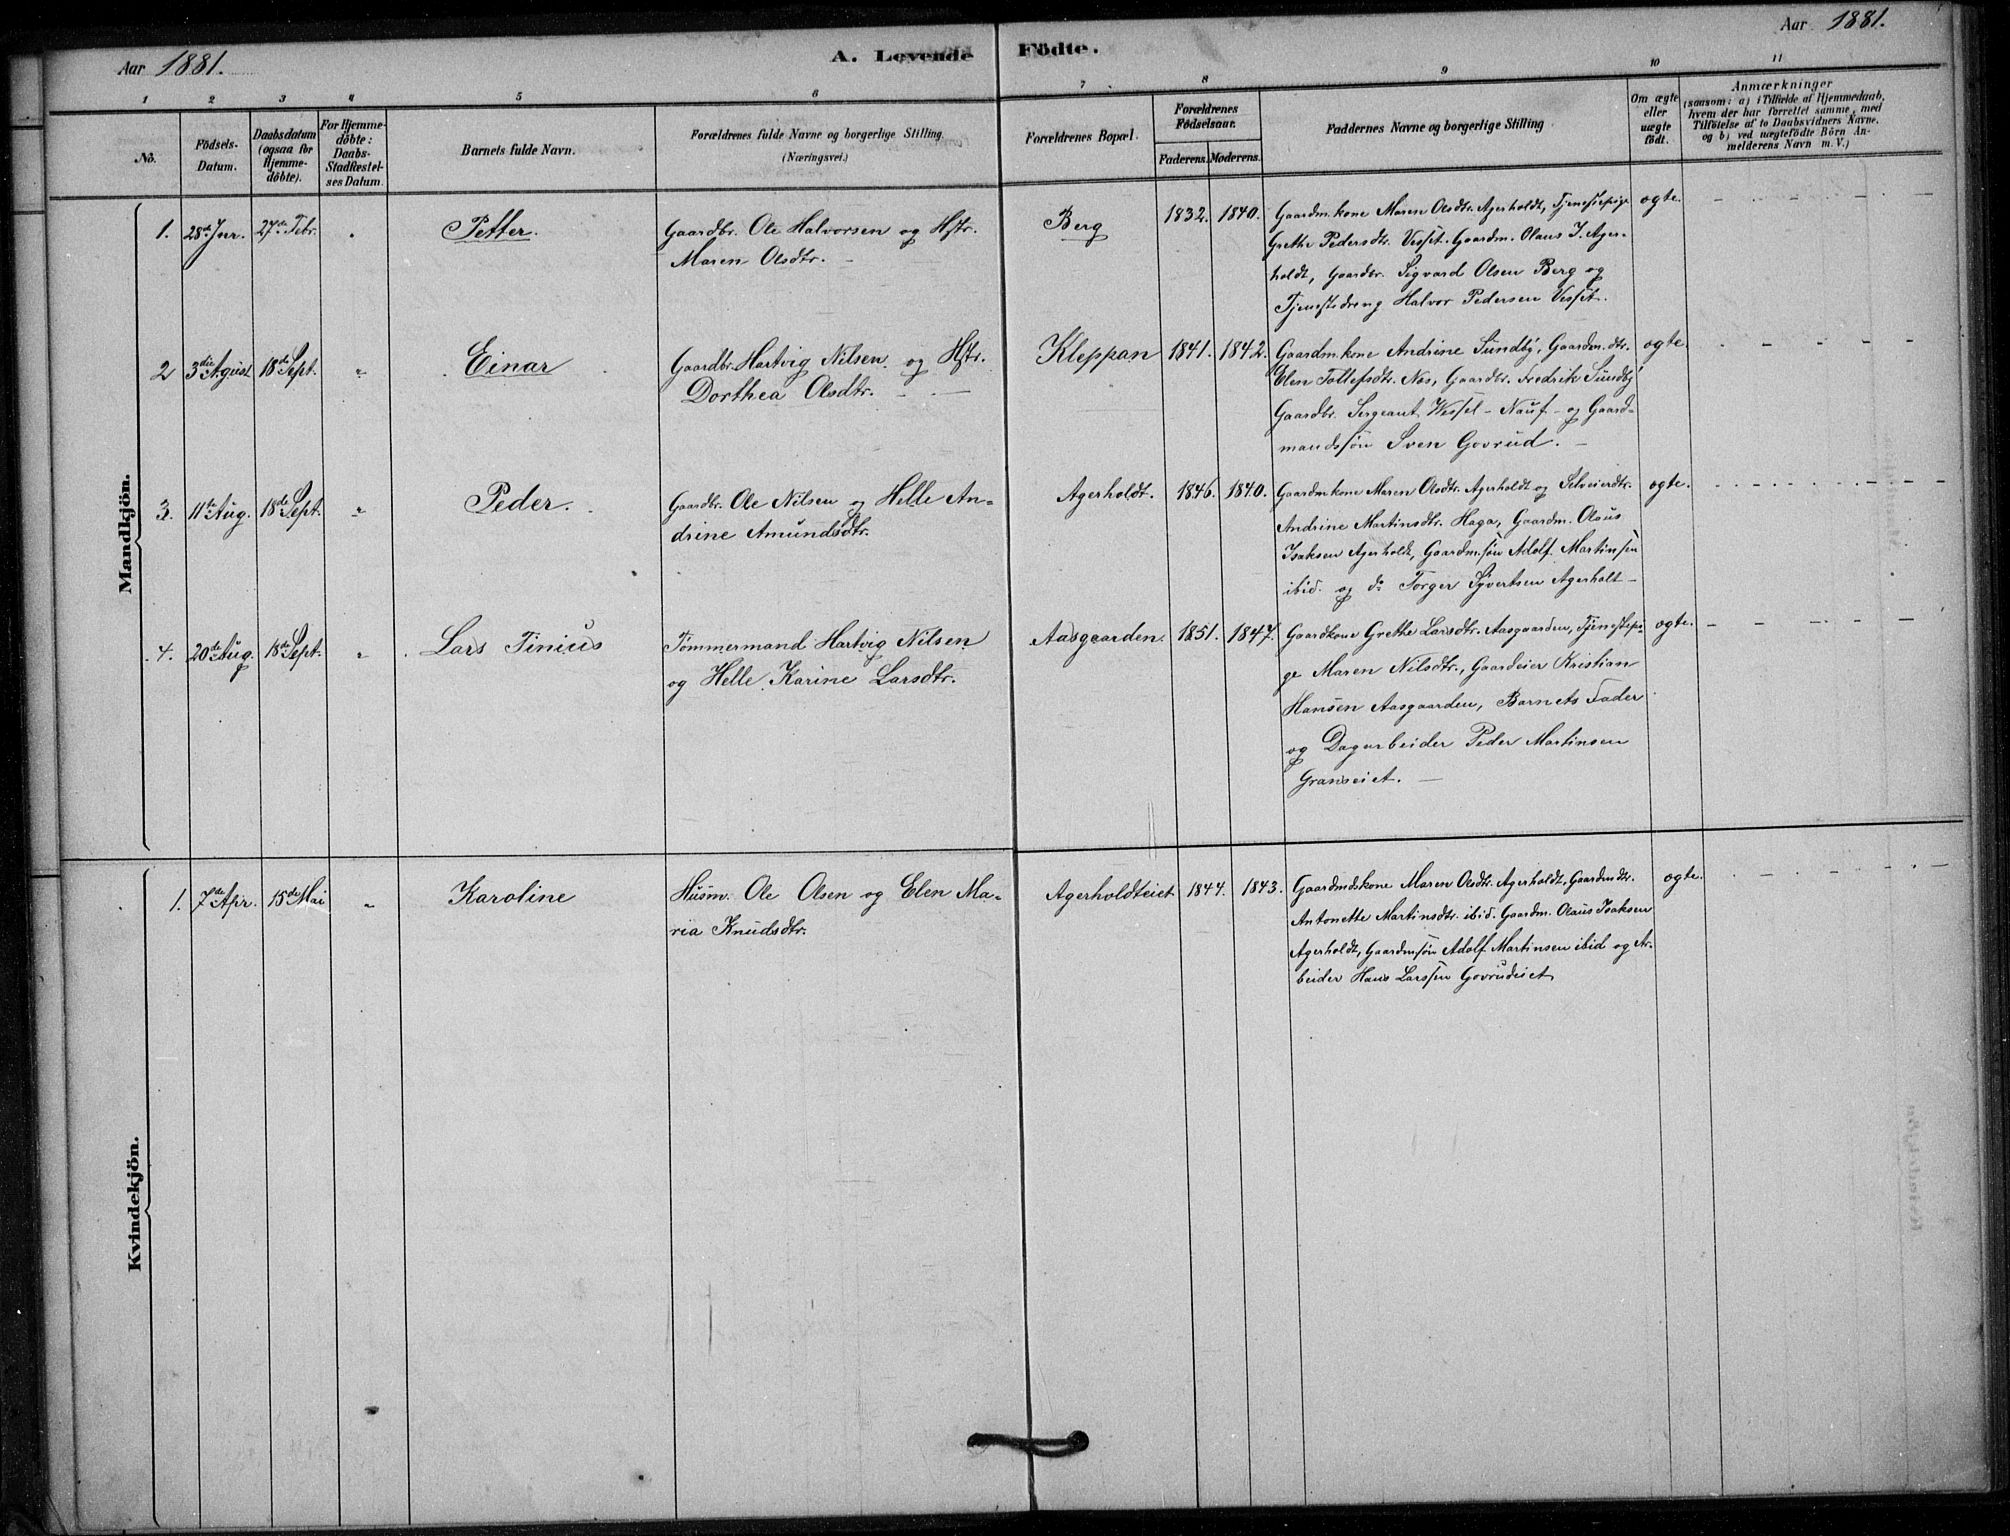 Aar 1881.
A. Levende Födte.
Aar 1881.
1 2 3 4 5 6 7 8 9 10 11
No.
Födsels-
Datum.
Daabsdatum
(ogsaa for
Hjemme-
döbte).
For Hjemme-
döbte:
Daabs-
Stadfæstel-
ses Datum.
Barnets fulde Navn.
Forældrenes fulde Navne og borgerlige Stilling.
(Næringsvei.)
Forældrenes Bopæl.
Forældrenes
Födselsaar.
Faderens. Moderens.
Faddernes Navne og borgerlige Stilling
Om ægte
eller
uægte
födt.
Anmærkninger
(saasom: a) i Tilfælde af Hjemmedaab,
hvem der har forrettet samme, med
Tilföielse af to Daabsvidners Navne.
og b) ved uægtefödte Börn An-
melderens Navn m. V.)
Mandkjön.
1. 28de Jnr. 27de Febr. " Petter.
Gaardbr. Ole Halvorsen og Hstr.
Maren Olsdtr. —
Berg 1832. 1840.
Gaardm.kone Maren Olsdtr. Agerholdt, Tjenstepige
Grethe Pedersdtr. Vesset. Gaardm. Olaus I. Ager-
holdt, Gaardbr. Sigvard Olsen Berg og
Tjenstedreng Halvor Pedersen Vesset.
ogte.
2 3die Agust 18de Sept. " Einar
Gaardbr. Hartvig Nilsen og Hstr.
Dorthea Olsdtr. —
Kleppan 1841. 1842.
Gaardm.kone Andrine Sundby, Gaardm.dtr.
Elen Tollefsdtr. Nos, Gaardbr. Fredrik Sundby
Gaardbr. Sergeant Wessel - Nauf - og Gaard-
mandssøn Sven Govrud. —
ogte
3. 11te Aug. 18de Sept. " Peder.
Gaardbr. Ole Nilsen og Helle An-
drine Amundsdtr.
Agerholdt. 1846. 1840.
Gaardmkone Maren Olsdtr. Agerholdt og Selveierdtr.
Andrine Martinsdtr. Haga, Gaardm. Olaus
Isaksen Agerholdt, Gaardm.søn Adolf Martinsen
ibid. og do Torger Syvertsen Agerholt —
ogte.
4. 20de Aug. 18de Sept. " Lars Tinius
Tømmermand Hartvig Nilsen
og Helle Karine Larsdtr.
Aasgaarden. 1851. 1847.
Gaardkone Grethe Larsdtr. Aasgaarden, Tjenstepi-
ge Maren Nilsdtr., Gaardeier Kristian
Hansen Aasgaarden, Barnets Fader
og Dagarbeider Peder Martinsen
Granseiet. —
ogte.
Kvindekjön.
1. 7de Apr. 15de Mai " Karoline
Husm. Ole Olsen og Elen Ma-
ria Knudsdtr.
Agerholdteiet 1844. 1843.
Gaardmdskone Maren Olsdtr. Agerholdt, Gaardmdtr.
Antonette Martinsdtr. ibid. Gaardm. Olaus Isaksen
Agerholdt, Gaardmsøn Adolf Martinsen ibid og Ar-
beider Hans Larssen Govrudeiet
ogte.